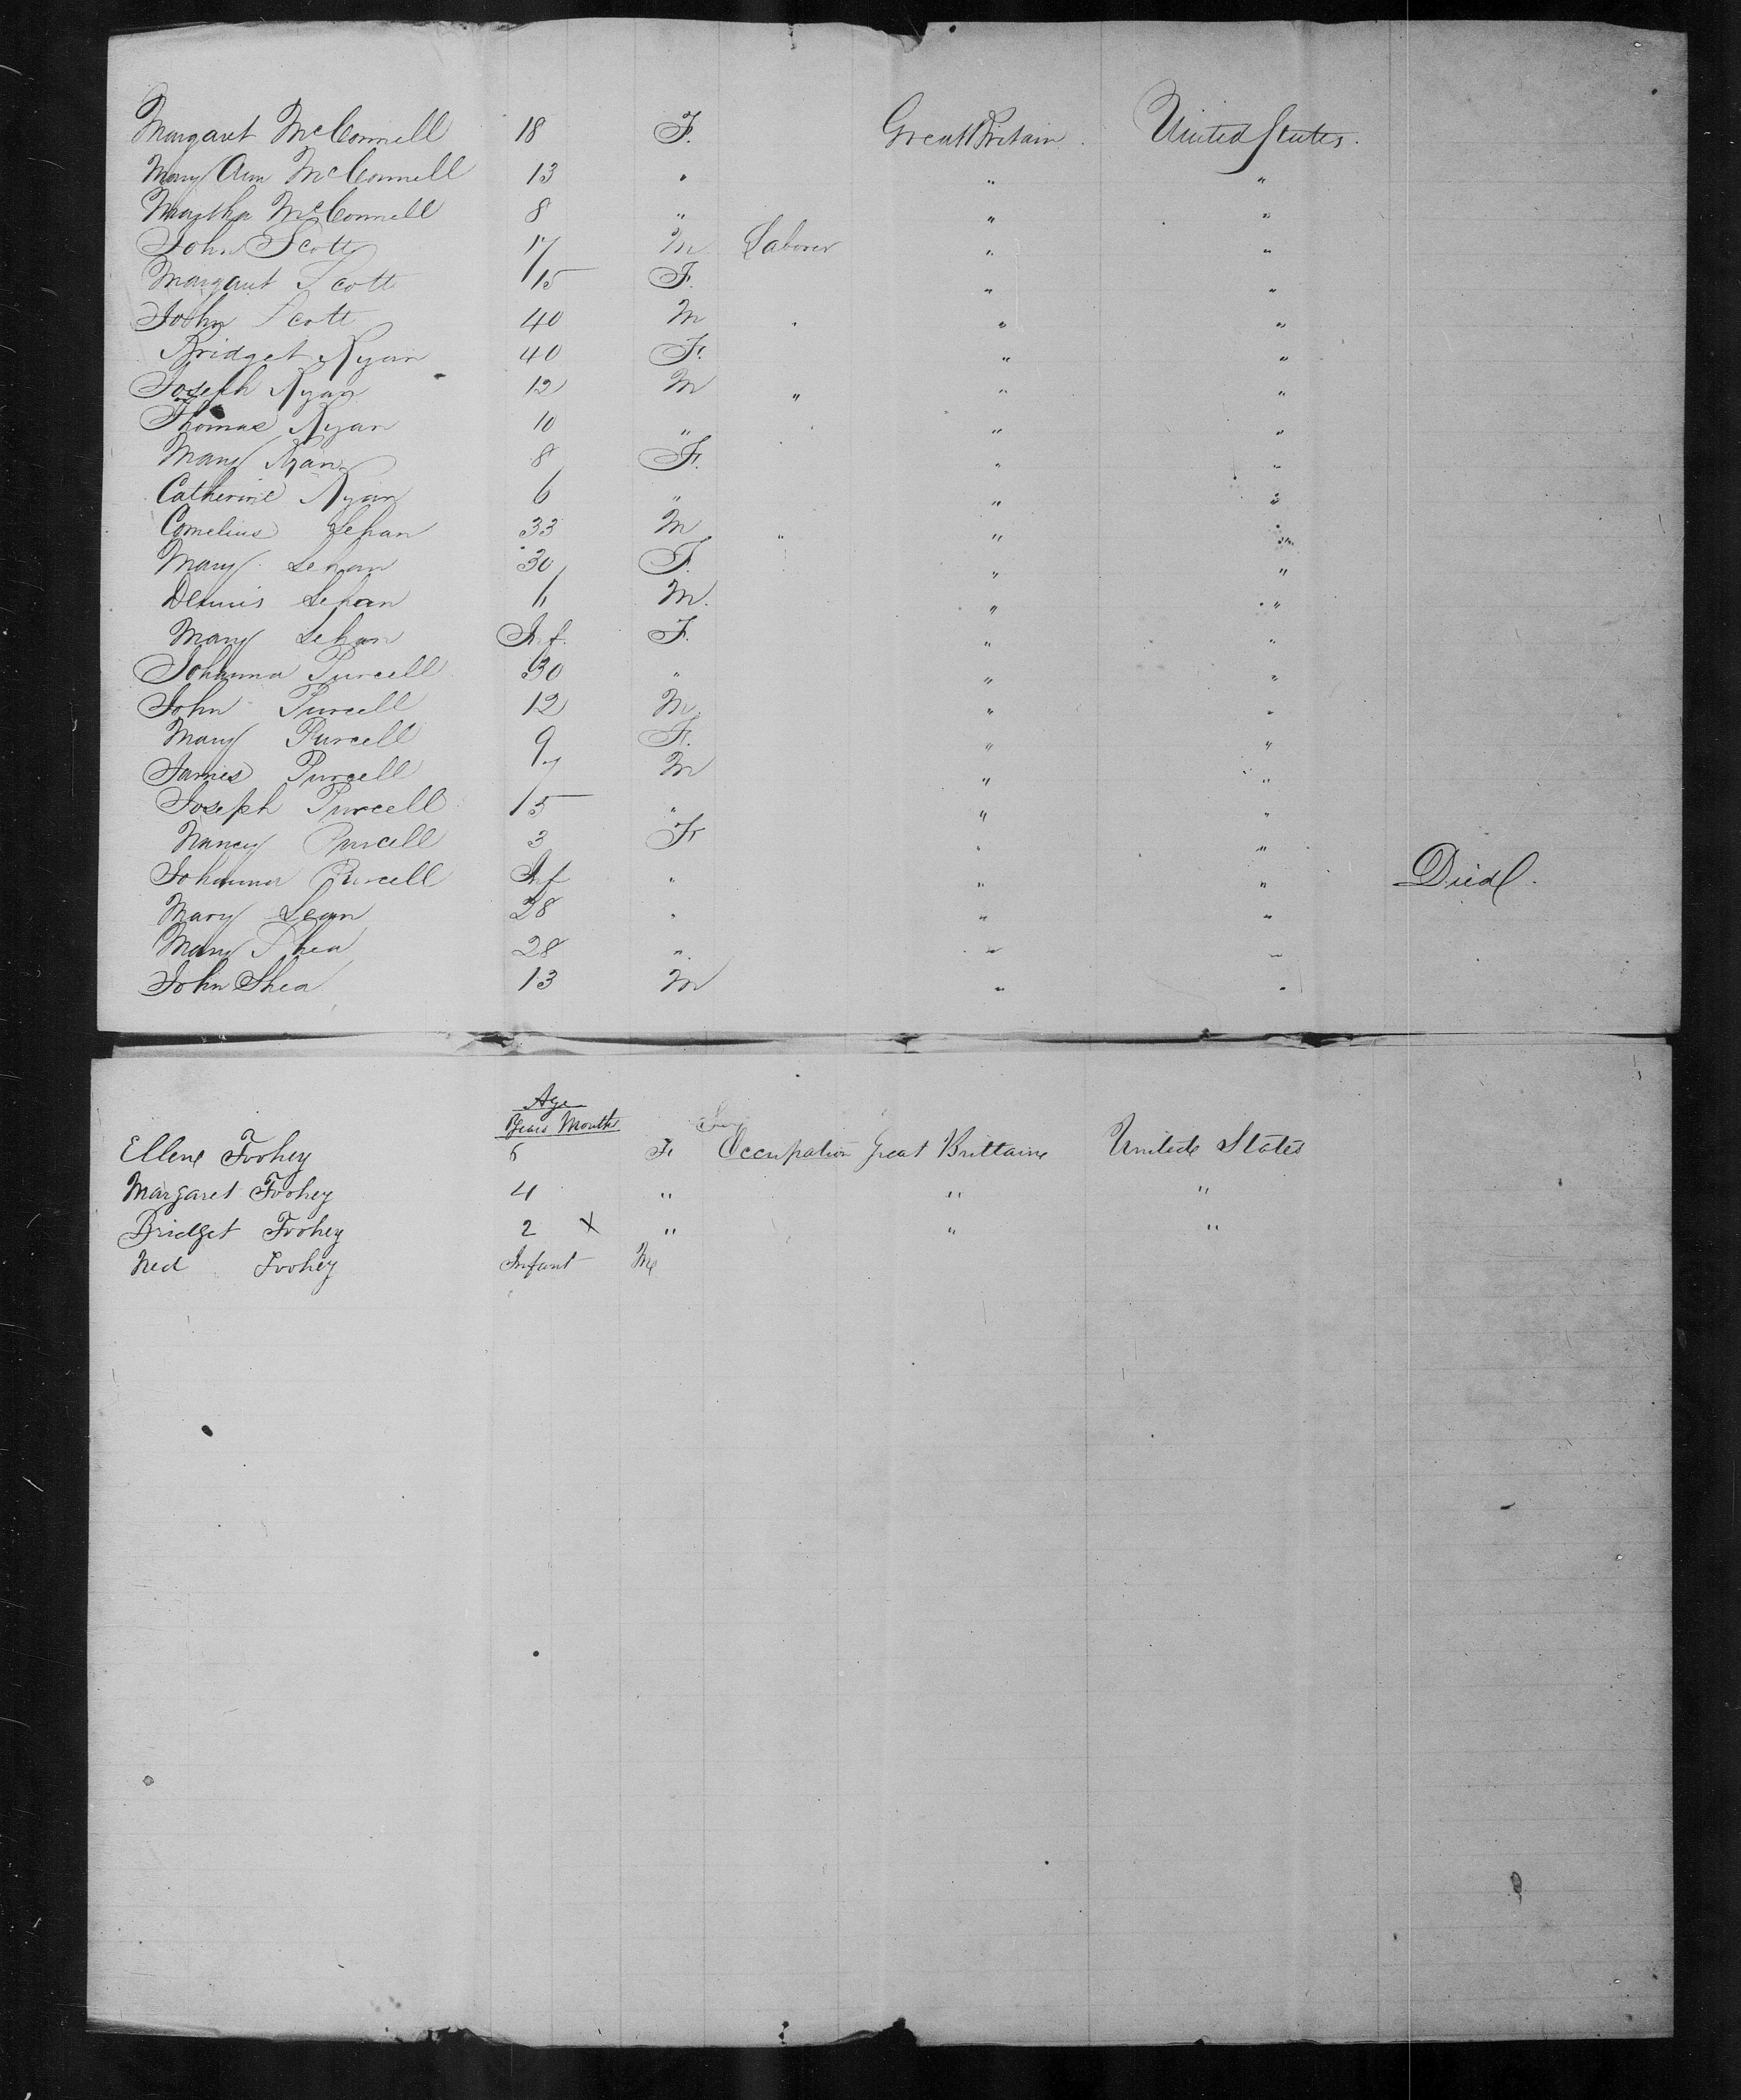 Margaret McConnell 18 F. Great Britain. United States.
Mary Ann McConnell 13 " " "
Martha McConnell 8 " " "
John Scott 17 M Laborer " "
Margaret Scott 15 F. " "
John Scott 40 M " " "
Bridget Ryan 40 F. " "
Joseph Ryan 12 M " " "
Thomas Ryan 10 " " "
Mary Ryan 8 F. " "
Catherine Ryan 6 " " "
Cornelius Lehan 33 M " " "
Mary Lehan 30 F. " "
Dennis Lehan M. " "
Mary Lehan Inf. F. " "
Johanna Purcell 30 " " "
John Purcell 12 M. " "
Mary Purcell 9 F. " "
James Purcell 7 M " "
Joseph Purcell 5 " " "
Nancy Purcell 3 F. " "
Johanna Purcell Inf " " " Died.
Mary 28 " " "
Mary Shea 28 " " "
John Shea 13 M " "
Age
Years Months
Ellene Foohey 6 F. Occupation Great Brittaine United States
Margaret Foohey 4 " " "
Bridget Foohey 2 X " " "
Ned Foohey Infant M